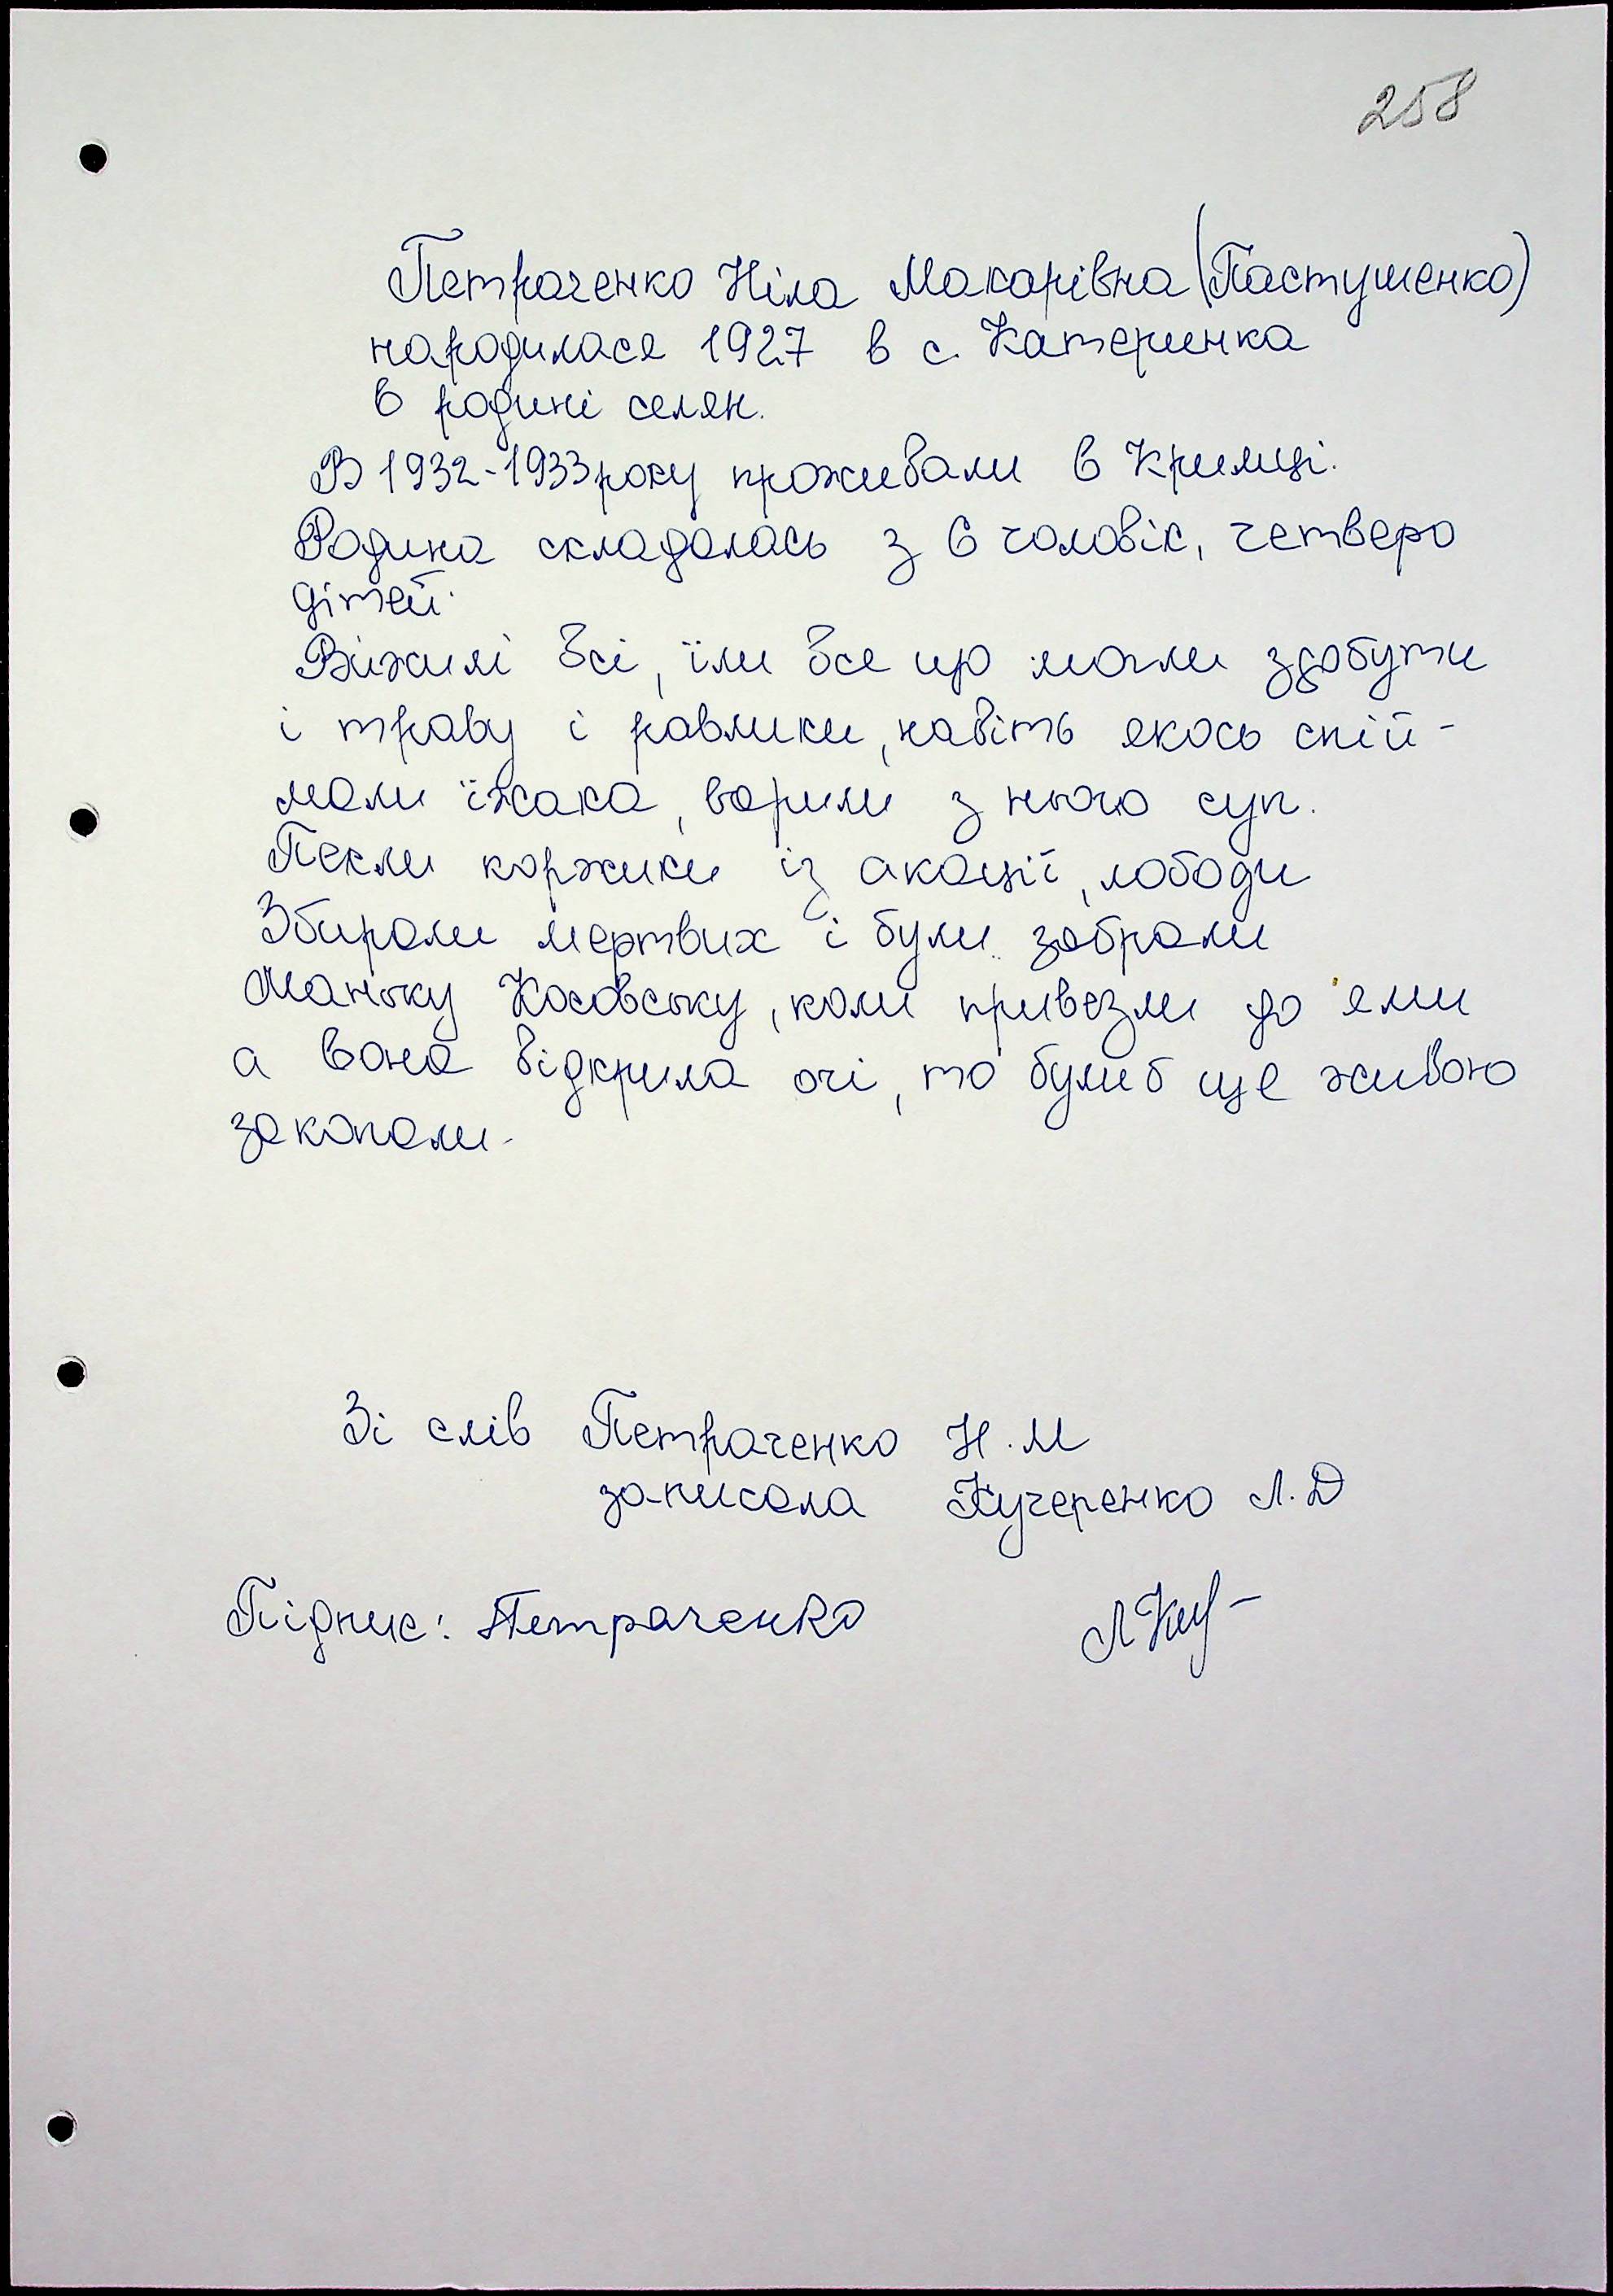 258
Петраченко Ніла Макарівна (Пастушенко)
народилася 1927 в с. Катеринка
в родині селян.
В 1932-1933 року проживали в Кримці.
Родина складалась з 6 чоловік, четверо
дітей.
Вижилі всі, їли все що могли здобути
і траву і равлики, навіть якось спій-
мали їжака, варили з нього суп.
Пекли коржики із акації, лободи
Збирали мертвих і були забрали
Маньку Косовську, коли привезли до ями
а вона відкрила очі, то були б ще живою
закопали.
Зі слів Петраченко Н.М
записала Кучеренко Л.Д
Підпис: Петраченко